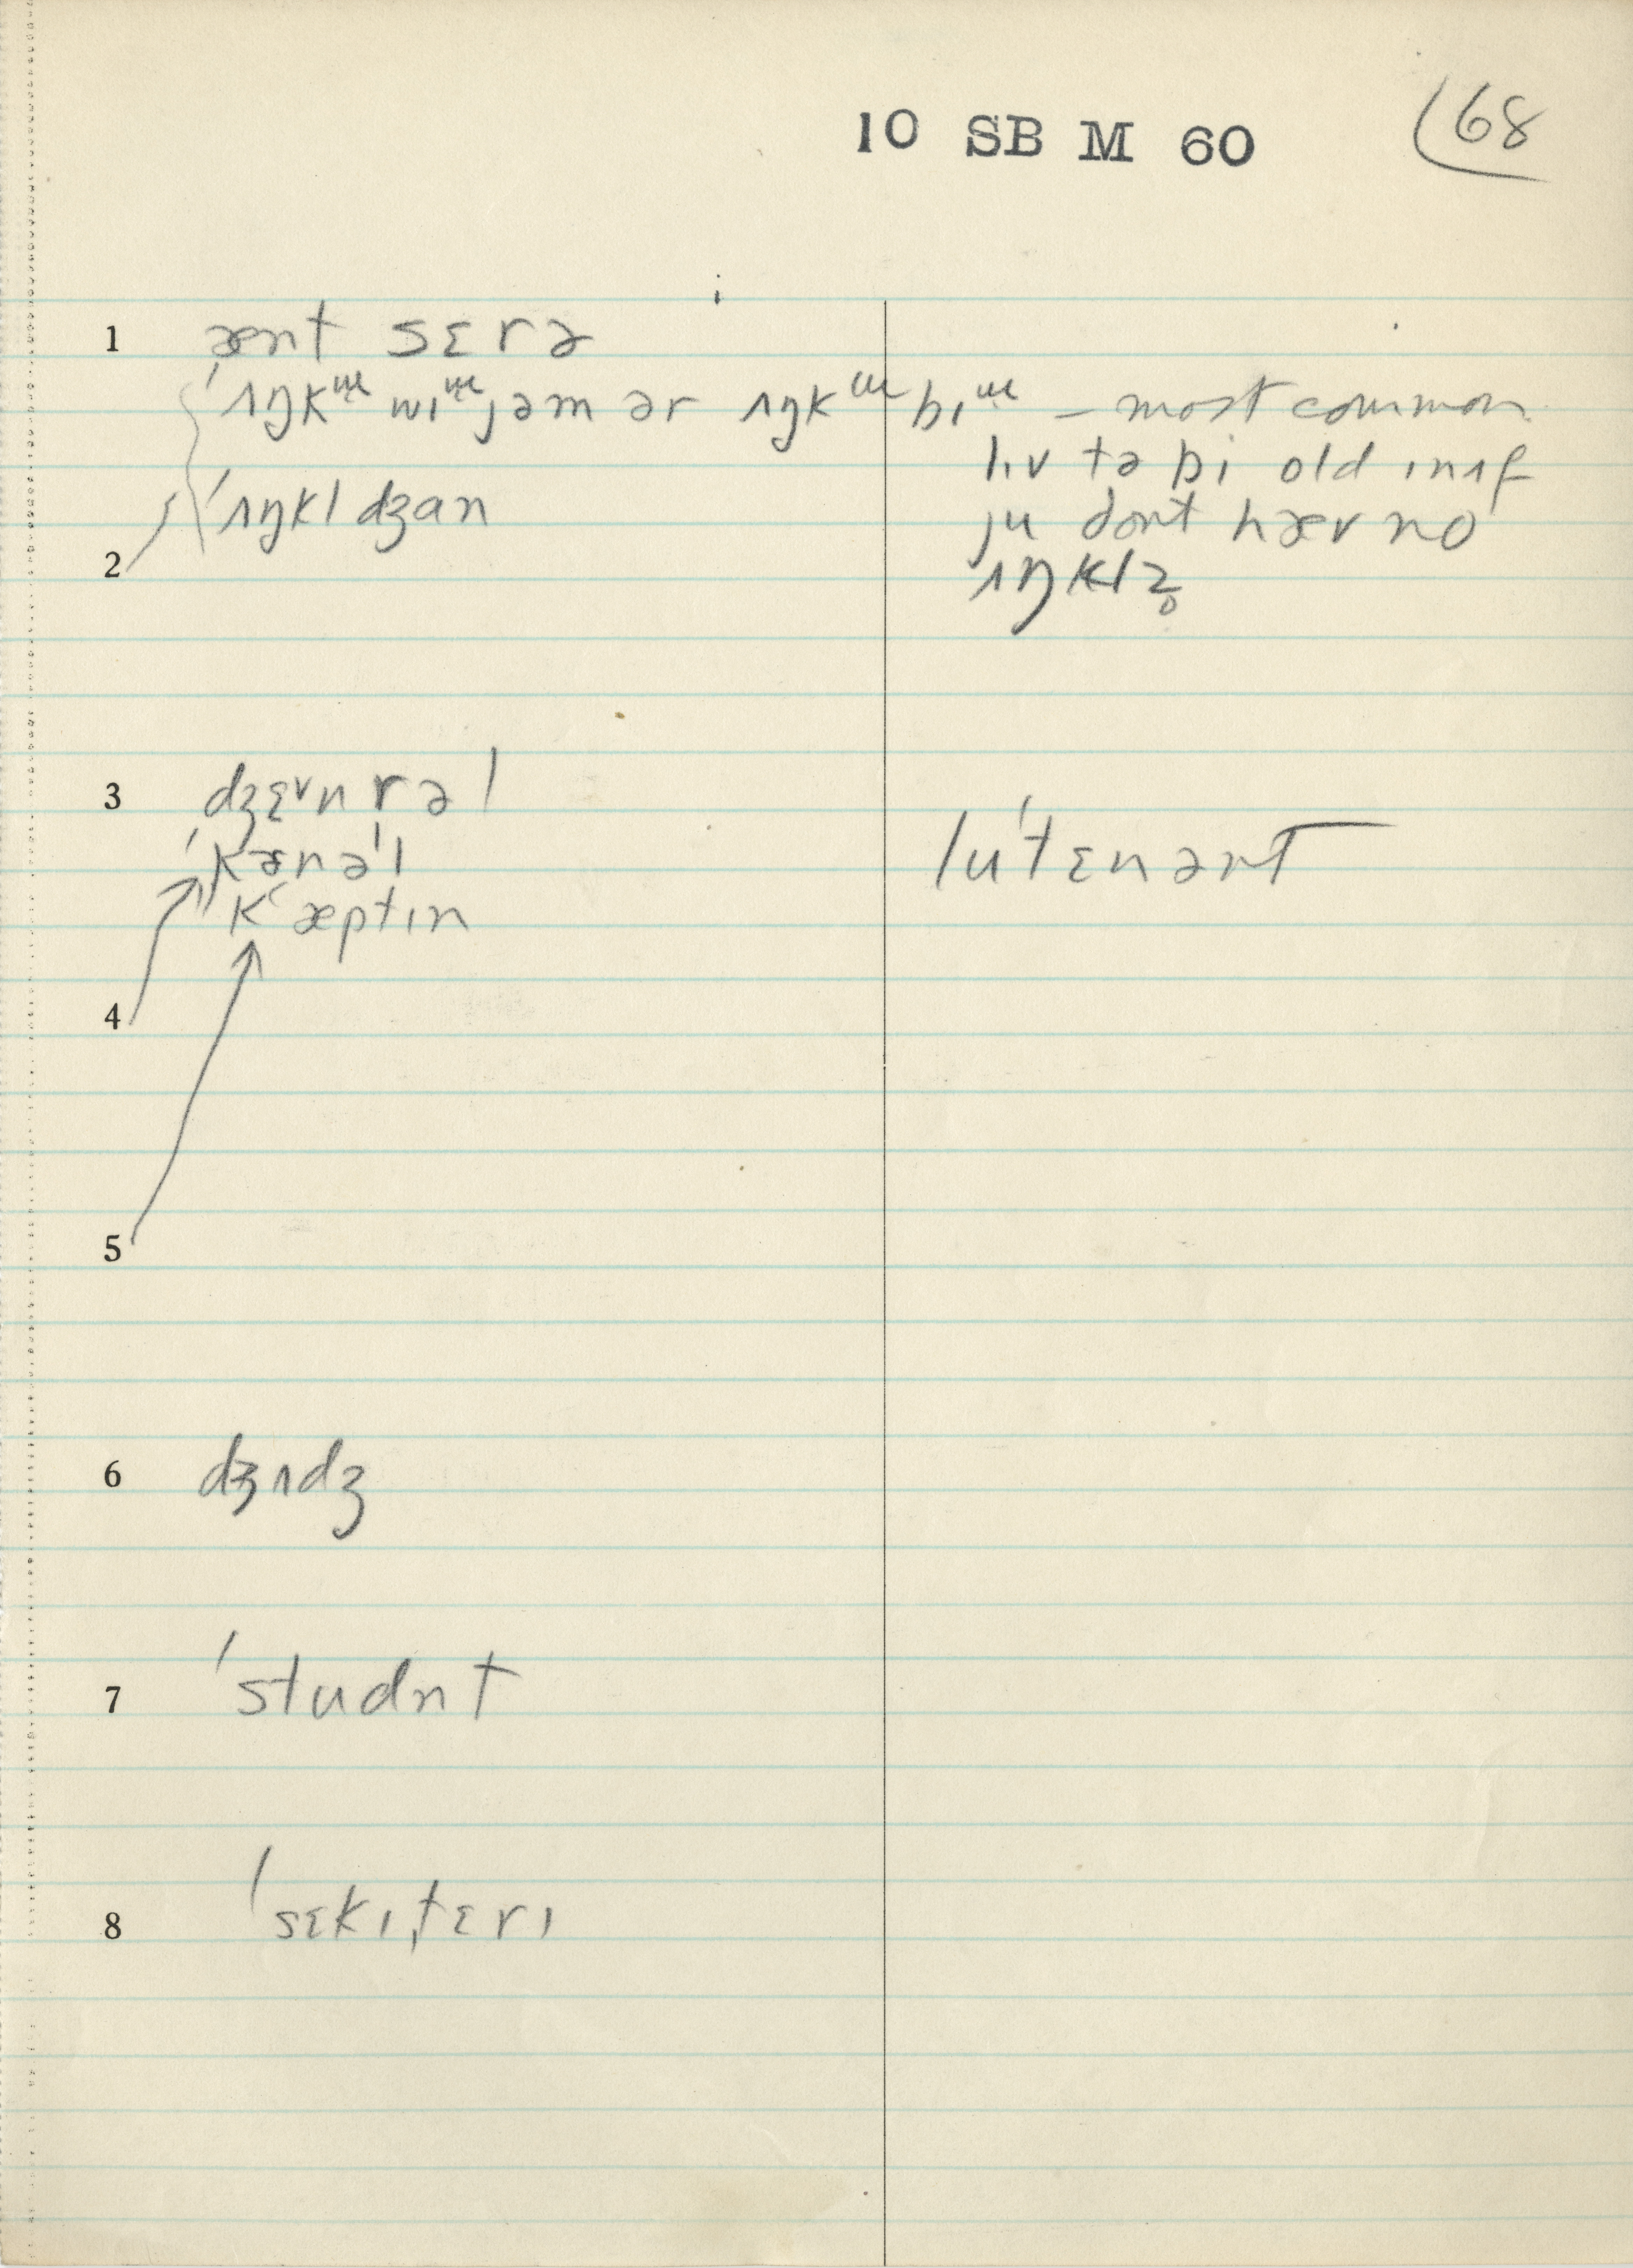 10 SB M 60
68
1 ænt sɛrə
ˈʌŋkɯ wɪɯjəm ər ʌŋkɯ bɪɯ – most common
lɪv tə bi old ɪnʌf
2 ˈʌŋkl dʒan
ju dont hæv no
ʌŋklz̥
3 dʒɛᵛnrəl
luˈtɛnənt
ˈkənəl
ˈkæptɪn
4
5
6 dʒʌdʒ
7 ˈstudnt
8 ˈsɛkɪˌtɛrɪ